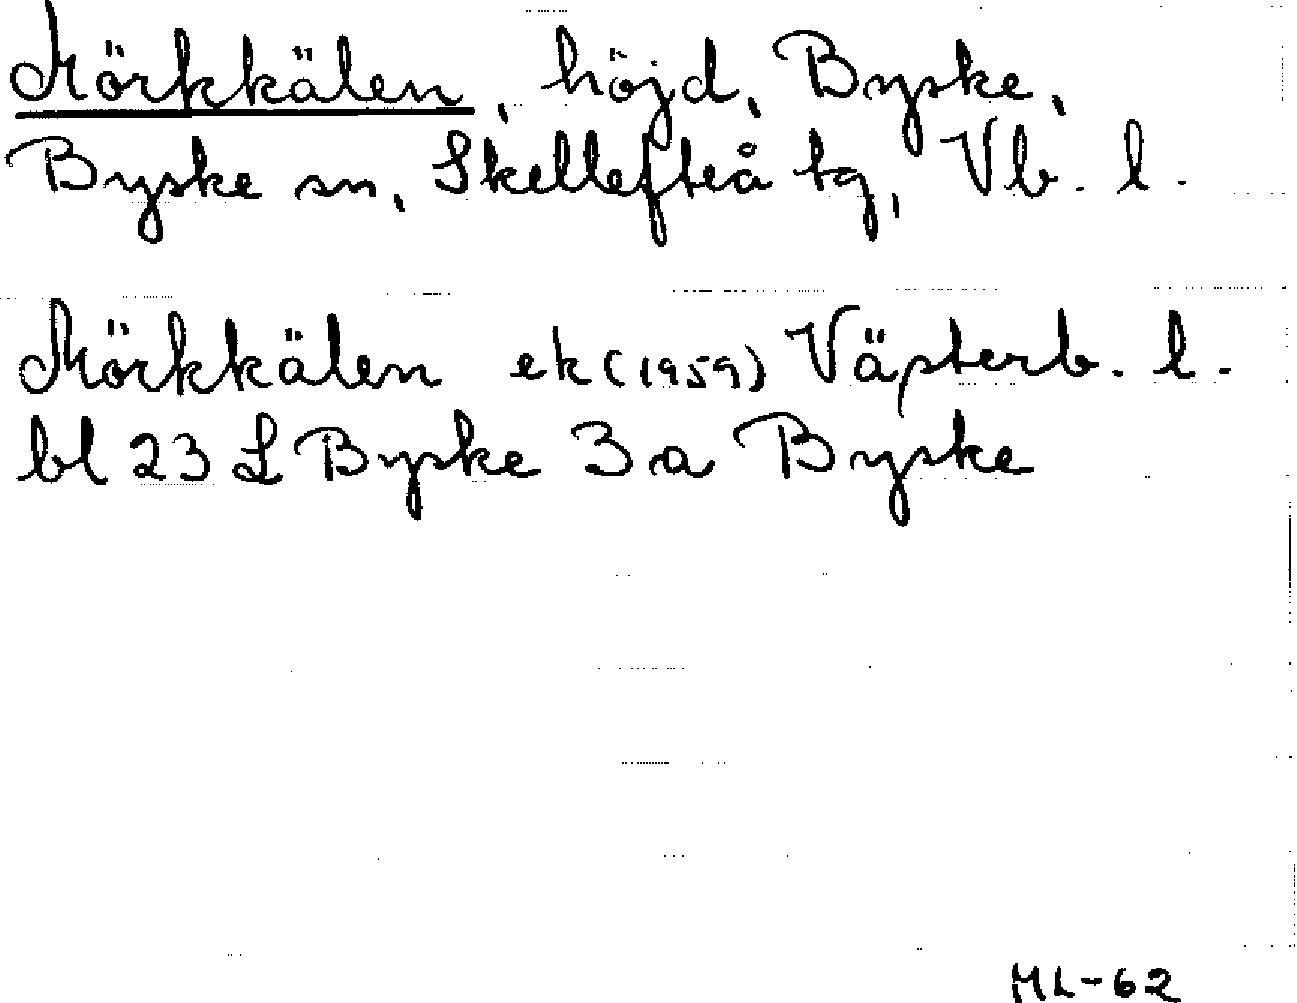 Mörkkälen, höjd, Byske,
Byske sn, Skellefteå tg, Vb. l.
Mörkkälen ek (1959) Västerb. l.
bl 23 L Byske 3 a Byske
ML-62